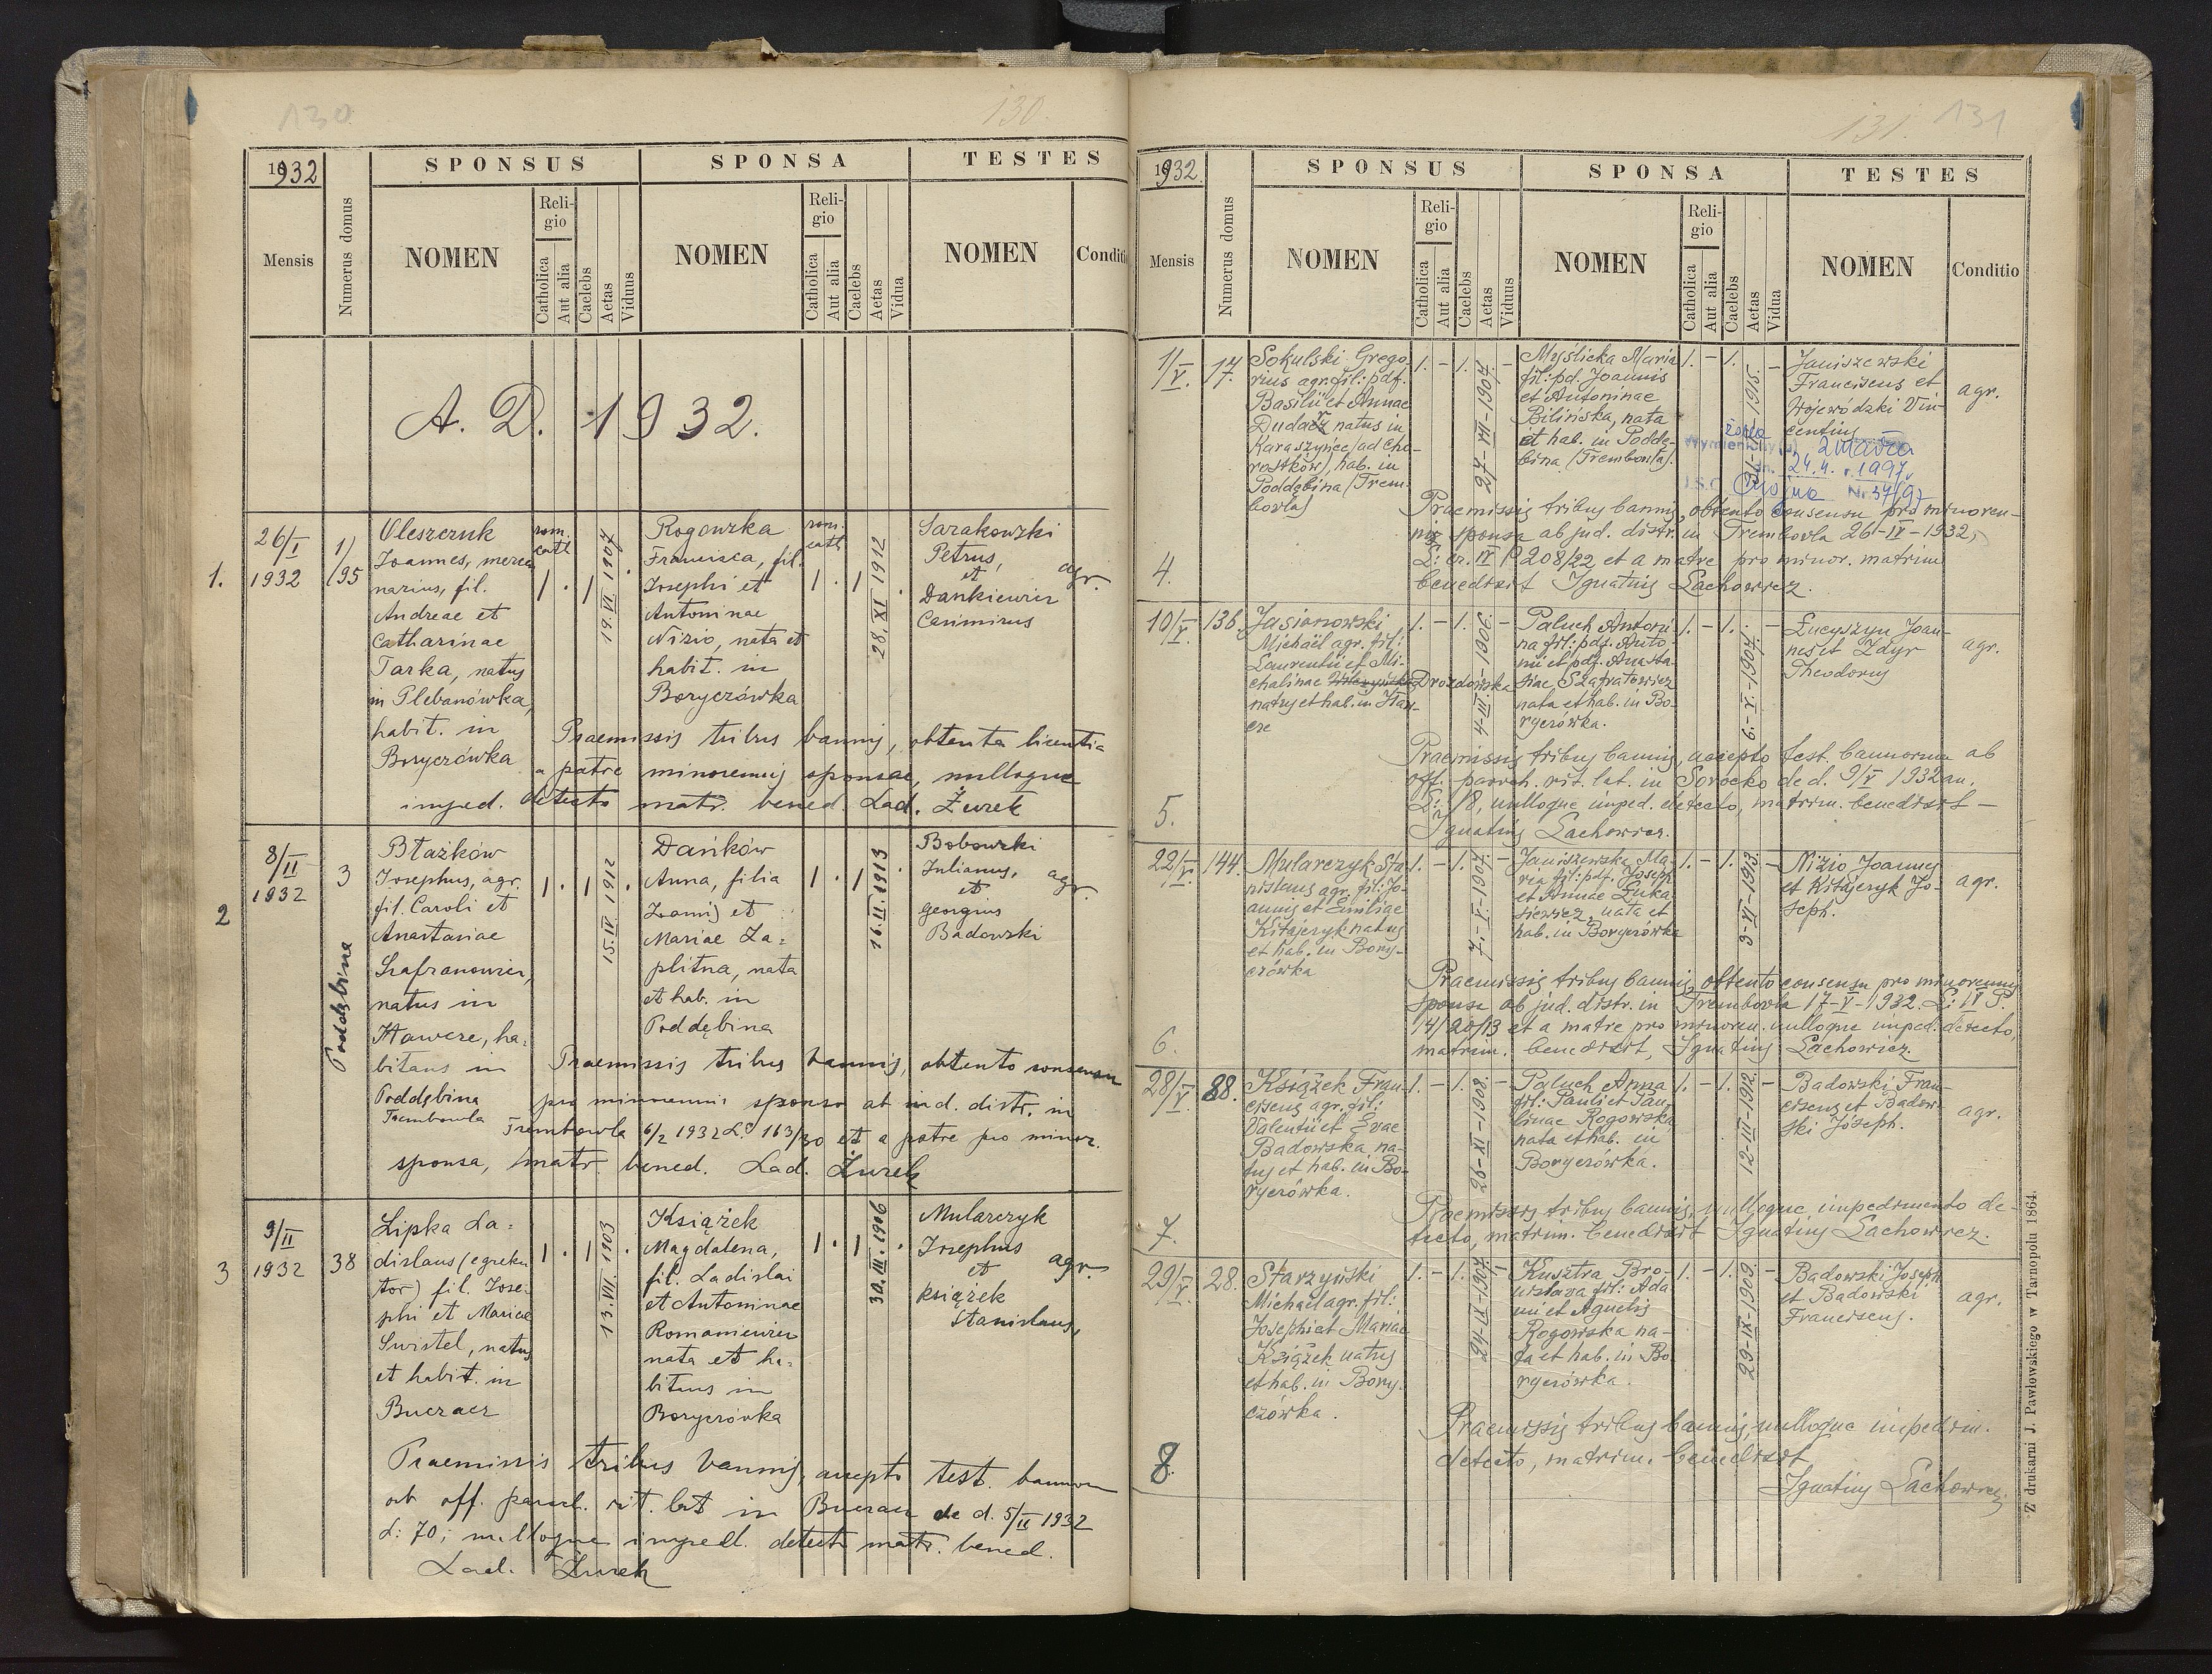 130
130.
1932
SPONSUS
SPONSA
TESTES
Mensis
Numerus domus
NOMEN
Reli-
gio
Catholica
Aut alia
Caelebs
Aetas
Viduus
NOMEN
Reli-
gio
Catholica
Aut alia
Caelebs
Aetas
Vidua
NOMEN
Conditi
A. D. 1932.
1.
26/I
1932
1/
195
Oleszczuk
Joannes, merce
narius, fil.
Andreae et
Catharinae
Tarka, natus
in Plebanówka,
habit. in
Boryczówka
rom.
cath
1 . 1
19.VI 1907
Rogowska
Francisca, fil.
Josephi et
Antoninae
Nizio, nata et
habit. in
Boryczówka
rom.
cath
1 . 1
28.XI 1912
Sarakowski
Petrus,
et
Dankiewicz
Casimirus
agr.
Praemissis tribus bannis, obtenta licentia
a patre minorennis sponsae, nulloque
imped. detecto matr. bened. Lad. Żurek
2
8/II
1932
3
Poddębina
Błażków
Josephus, agr.
fil. Caroli et
Anastasiae
Szafranowicz,
natus in
Hawcze, ha-
bitans in
Poddębina
Trembowla
1 . 1
15.IV 1912
Dańków
Anna, filia
Joannis et
Mariae Za-
plitna, nata
et hab. in
Poddębina
1 . 1
16.II.1913
Bobowski
Julianus,
et
Georgius
Badowski
agr.
Praemissis tribus bannis, obtento consensu
pro minorenni sponso ab iud. distr. in
Trembowla 6/2 1932 L. 163/30 et a patre pro minor.
sponsa, matr. bened. Lad. Żurek
3
9/II
1932
38
Lipka La-
dislaus (egzeku
tor) fil. Jose-
phi et Mariae
Swistel, natus
et habit. in
Buczacz
1 . 1
13.VI. 1903
Książek
Magdalena,
fil. Ladislai
et Antoninae
Romaniewicz
nata et ha-
bitans in
Boryczówka
1 . 1
30.III.1906
Mularczyk
Josephus
et
Książek
Stanislaus,
agr.
Praemissis tribus bannis, accepto test. bannor
ab off. paroch. rit. lat in Buczacz de d. 5/II 1932
L: 70; nulloque imped. detecto matr. bened.
Lad. Żurek
131.
131
1932.
SPONSUS
SPONSA
TESTES
Mensis
Numerus domus
NOMEN
Reli-
gio
Catholica
Aut alia
Caelebs
Aetas
Viduus
NOMEN
Reli-
gio
Catholica
Aut alia
Caelebs
Aetas
Vidua
NOMEN
Conditio
1/V.
17.
Sokulski Grego
rius agr. fil: pdf.
Basilii et Annae
Dudacz natus in
Karaszyńce (ad Cho-
rostków), hab. in
Poddębina (Trem-
bovla)
1. - 1. -
27-VII-1907
Myślicka Maria
fil: pd. Joannis
et Antoninae
Bilińska, nata
et hab. in Poddę-
bina (Trembowla).
1. - 1. -
31-1-1915.
Janiszewski
Franciscus et
Wojewódzki Vin-
centius
agr.
żona
Wymieniony(a) zmarła
dn. 24.4. r. 1997,
Nr 37/97
Praemissis tribus bannis, obtento consensu pro minoren-
nis sponsa ab jud. distr. in Trembovla 26-IV-1932,
L: cz. IV P 208/22 et a matre pro minor. matrim
benedixit Ignatius Lachowicz.
4.
10/V.
136
Jasionowski
Michaël agr. fil:
Laurentii et Mi-
chalinae Drozdowska
natus et hab. in Haw-
cze
1. - 1. -
4-III-1906.
Paluch Antoni
na fil: pdf. Anto-
nii et pdf. Anasta-
siae Szafranowicz
nata et hab. in Bo-
ryczówka.
1. - 1. -
6-V.-1907.
Łucyszyn Joan-
nes et Zdyr
Theodorus
agr.
Praemissis tribus bannis, accepto test. bannorum ab
off. paroch. rit. lat. in Sorocko de d. 9/V 1932 an.
L: 18, nulloque imped. detecto, matrim. benedixit -
Ignatius Lachowicz.
5.
22/V.
144.
Mularczyk Sta
nislaus agr. fil: Jo-
annis et Emiliae
Kitajczyk natus
et hab. in Bory-
czówka
1. - 1. -
7.-X-1907.
Janiszewska Ma-
ria fil: pdf. Joseph
et Annae Łuka-
siewicz, nata et
hab. in Boryczówka
1. - 1. -
3-VI-1913.
Nizio Joannes
et Kitajczyk Jo-
seph.
agr.
Praemissis tribus bannis, obtento consensu pro minorennis
sponsa ab jud. distr. in Trembowla 17-V-1932. L: IV P.
14/20/13 et a matre pro minoren. nulloque imped. detecto,
matrim. benedixit, Ignatius Lachowicz.
6.
28/V.
88.
Książek Fran-
ciscus agr. fil:
Valentii et Evae
Badowska, na-
tus et hab. in Bo-
ryczówka.
1. - 1. -
26-XI-1908.
Paluch Anna
fil: Pauli et Pau-
linae Rogowska
nata et hab. in
Boryczówka.
1. - 1. -
12-III-1912.
Badowski Fran-
ciscus et Badow-
ski Jóseph.
agr.
Praemissis tribus bannis, nulloque impedimento de-
tecto, matrim. benedixit Ignatius Lachowicz.
7.
29/V.
28.
Starzyński
Michaël agr. fil:
Josephi et Mariae
Książek natus
et hab. in Bory-
czówka.
1. - 1. -
24-IX-1907
Kusztra Bro-
nislava fil: Ada
mi et Agnetis
Rogowska na-
ta et hab. in Bo-
ryczówka.
1. - 1. -
29-IX-1909.
Badowski Joseph
et Badowski
Franciscus.
agr.
Praemissis tribus bannis, nulloque impedim.
detecto, matrim. benedixit
Ignatius Lachowicz.
8.
Z drukarni J. Pawłowskiego w Tarnopolu 1864.